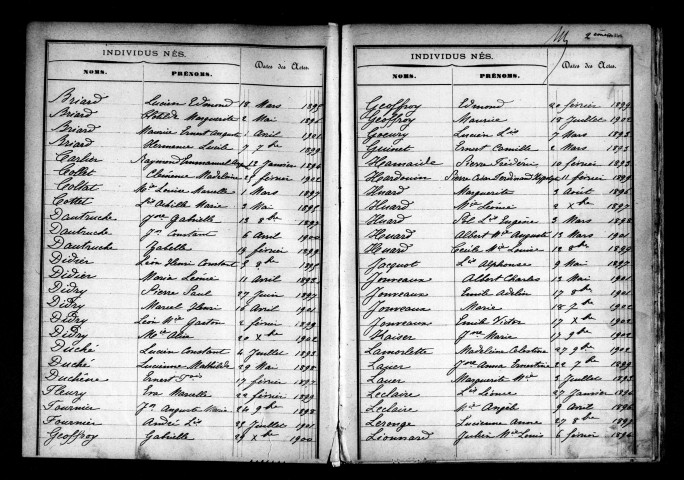 INDIVIDUS NÉS.
Dates des Actes.
NOMS. PRÉNOMS.
Briard Lucien Edmond 18 Mars 1895
Briard Clotilde Marguerite 2 Mai
Briard Maurice Ernest August 1 Avril 1901
Briard Hermence Lucile 7 7bre
Carlier Raymond Emmanuel 12 Janvier
Collet Clémence Madeleine 25 février 1902
Collat Mie Louise Marcelle 1 Mars 1897
Cottet Ls Achille Marie 3 Mai
Dautruche Jne Gabrielle 13 8bre
Dautruche Jn Constant 6 Avril 1900
Dautruche Isabelle 18 février 1899
Didier Léon Henri Constant 3 8bre
Didier Marie Léonie 11 Avril 1893
Didry Pierre Paul 17 Juin 1897
Didry Marcel Henri 16 Avril 1901
Didry Léon Mie Gaston 2 février 1899
Didry Mie Alice 20 Xbre 1902
Duché Lucien Constant 4 Juillet 1893
Duché Lucienne Mathilde 29 Mai 1898
Duchêne Ernest 17 février
Fleury Eva Marcelle 22 février
Fournier Jn Auguste Marie 24 9bre 1898
Fournier André Ls 28 Juillet 1901
Geoffroy Gabrielle 29 Xbre 1900
INDIVIDUS NÉS.
Dates des Actes.
NOMS. PRÉNOMS.
Geoffroy Edmond 20 février 1899
Geoffroy Maurice 18 Juillet 1902
Gocury Lucien Ls 7 Mars 1893
Guinet Ernest Camille 2 Mars
Hamaide Pierre Frédéric 10 février 1893
Hardouin Pierre Ferdinand 11 février
Huard Marguerite 3 Août 1896
Huard Mie Léonie 2 Xbre 1897
Huard Pol Ls Eugène 3 Mars
Huard Albert Mie Auguste 13 Mars 1901
Huard Cécile Mie Louise 12 8bre
Jacquot Ls Alphonse 9 Mai 1897
Jonveaux Albert Charles 13 Mai 1901
Jonveaux Emile Adelin 17 8bre 1901
Jonveaux Marie 18 7bre 1902
Jonveaux Emile Victor 17 Xbre
Kaiser Jne Marie 17 9bre
Lamorlette Madeleine Celestine 27 9bre 1902
Lauer Jne Anna Ernestine 22 7bre 1899
Lauer Marguerite Mie 3 Juillet
Leclaire Ls Léonce 27 Janvier
Leclaire Mie Angèle 9 Avril
Lerouge Lucienne Anne 27 8bre
Lionnard Julien Mie Louis 6 février